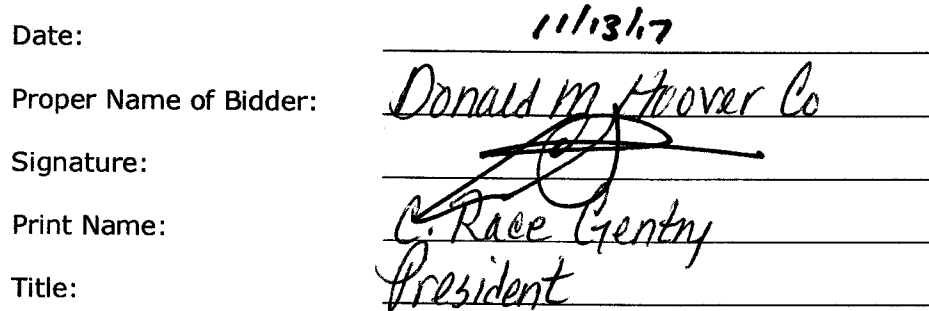 Date: 11/13/17
Proper Name of Bidder: Donald M Hoover Co
Signature:
Print Name: C. Race Gentry
Title: President